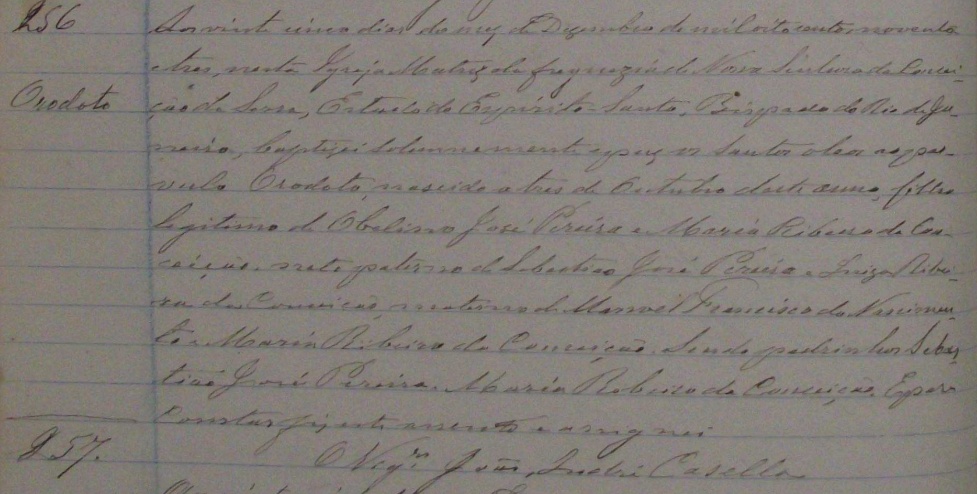 256
Aos vinte cinco dias do mez de Dezembro de mil oito cento noventa
e tres, nesta Igreja Matriz da freguezia de Nossa Senhora da Concei-
Orodoto
ção da Serra, Estado do Espirito-Santo, Bispado do Rio de Ja-
neiro, baptizei solennemente e puz os Santos oleos ao par-
vulo Orodoto, nascido a tres de Outubro deste anno, filho
legitimo de Obelisno José Pereira e Maria Ribeiro da Con-
ceição, neto paterno de Sebastião José Pereira e Luiza Ribei-
ra da Conceição, materno de Manoel Francisco do Nascimen-
to e Maria Ribeiro da Conceição. Sendo padrinhos Sebas-
tião José Pereira e Maria Ribeiro da Conceição. E para
constar fiz este assento e assignei
257.
O Vigrº João André Casella